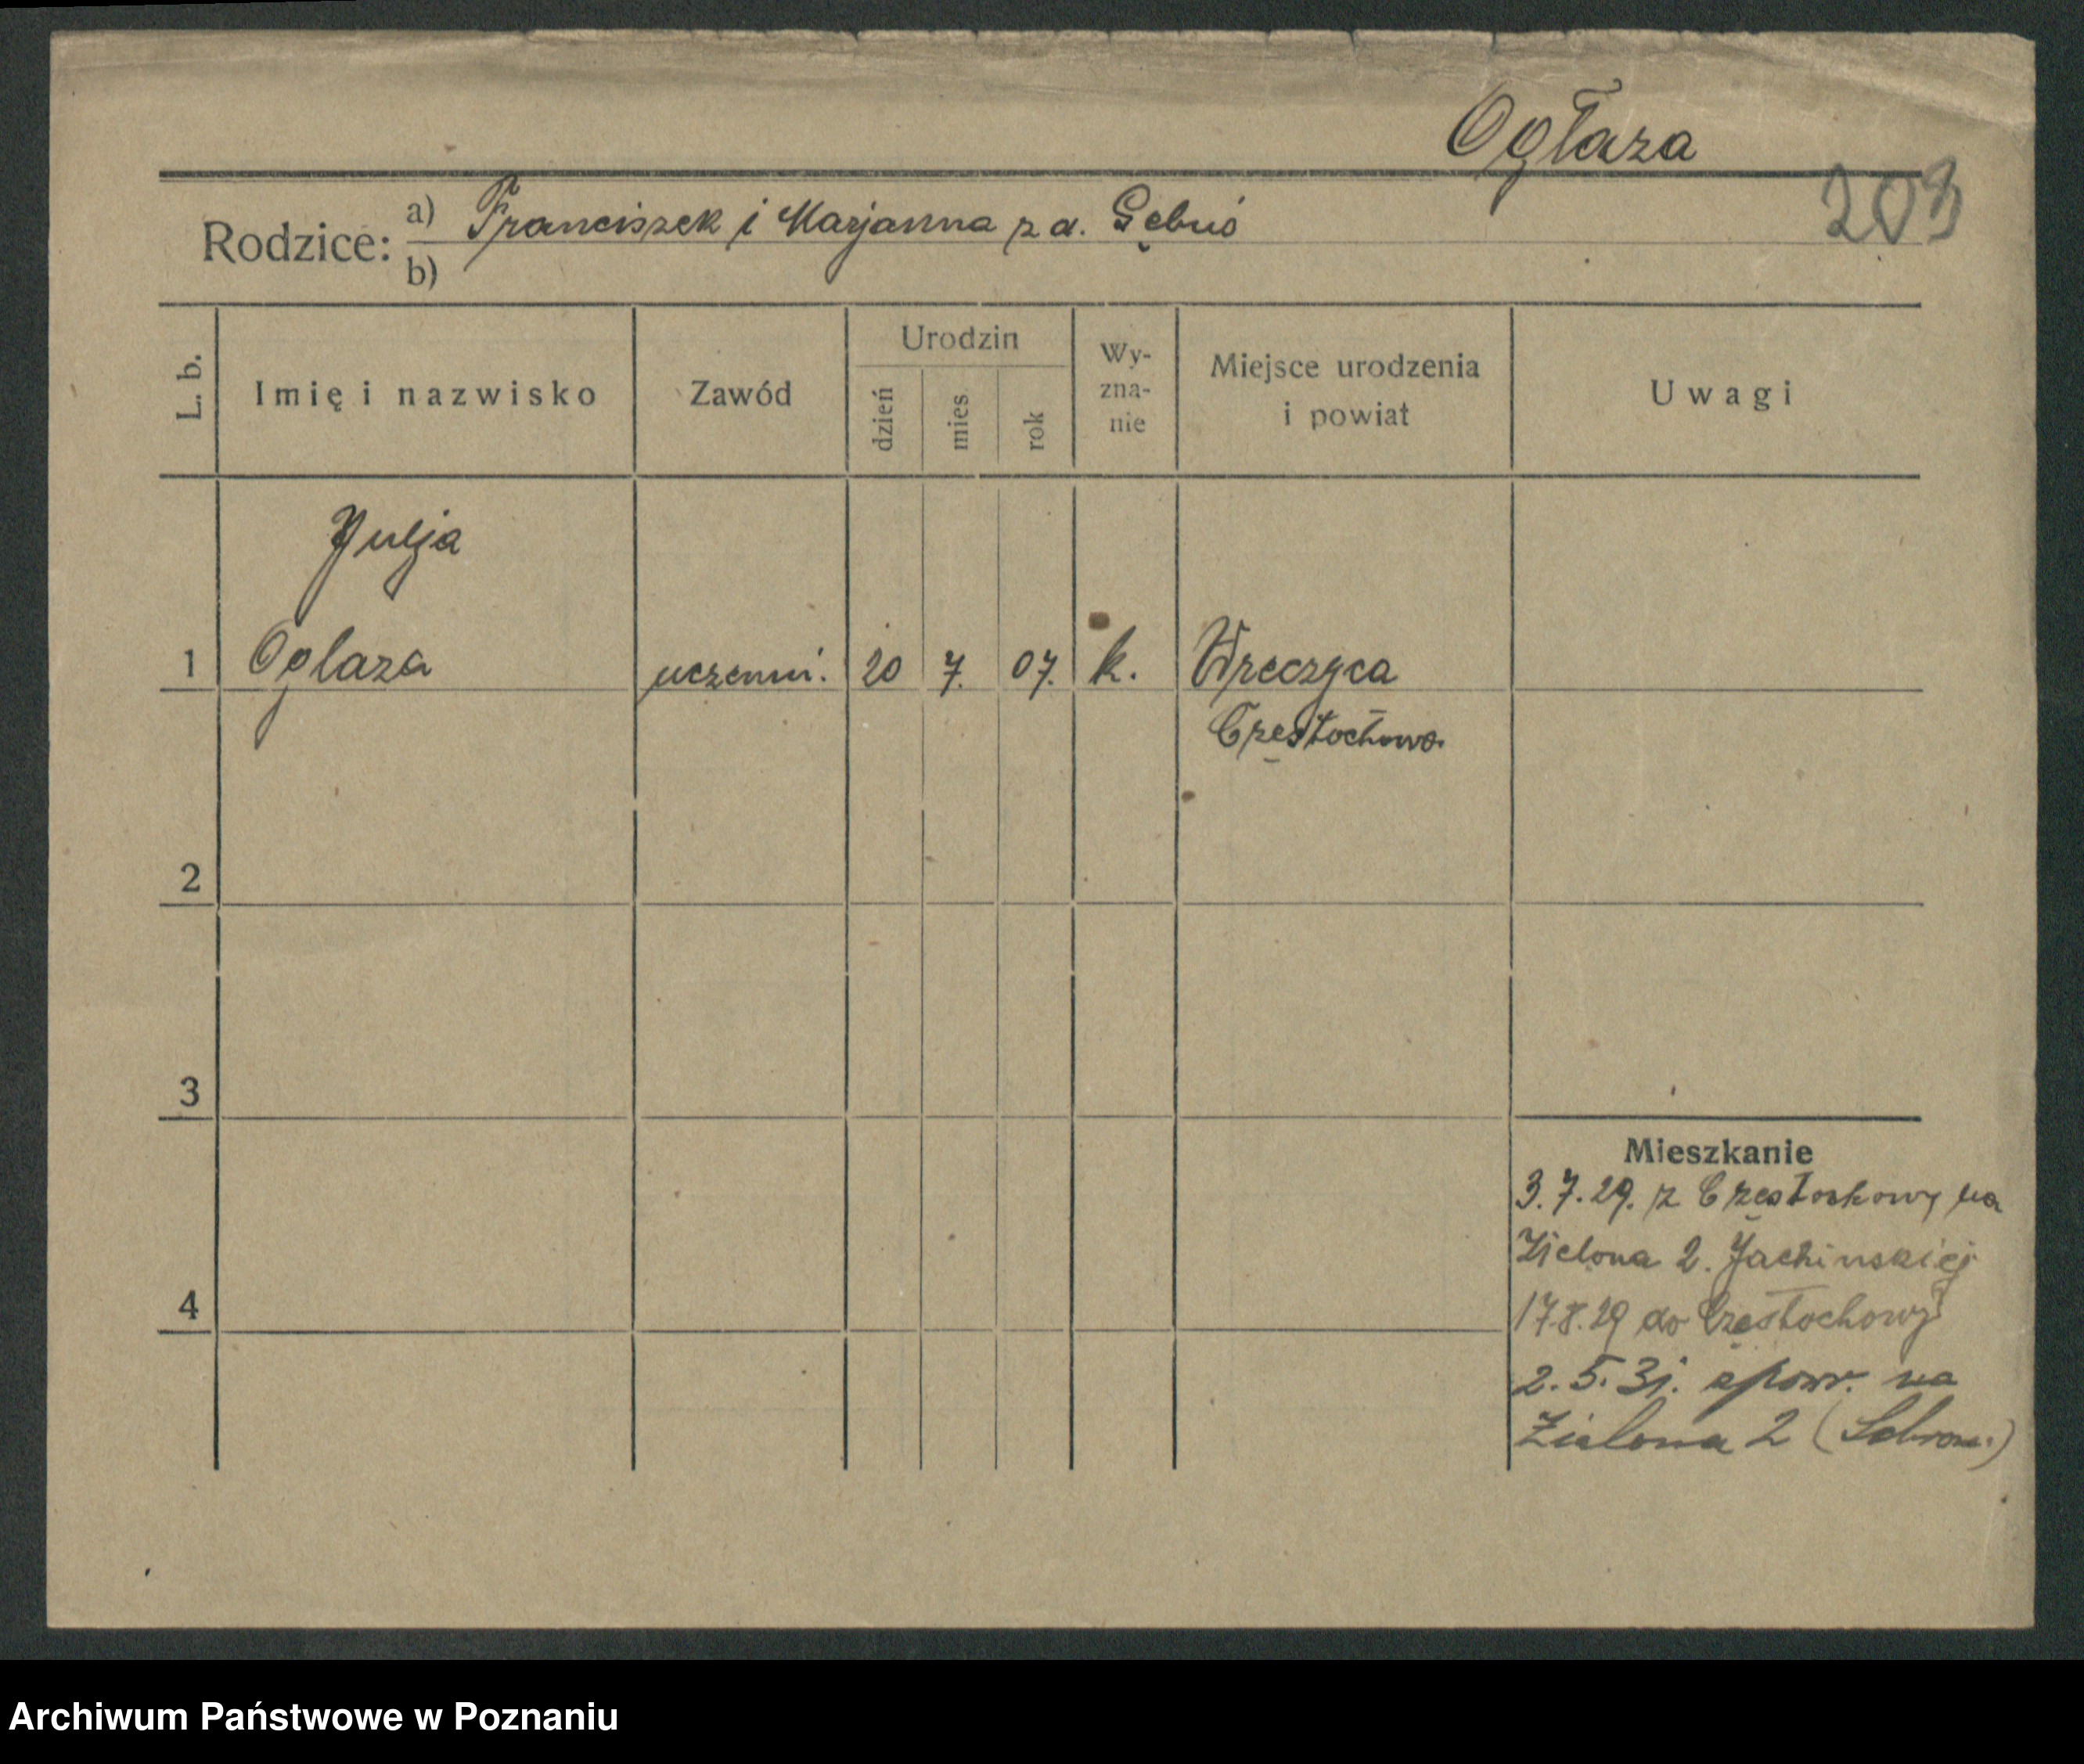 Ogłaza
203
Rodzice: a) Franciszek i Marjanna z d. Gębuś
b)
L. b.
Imię i nazwisko
Zawód
Urodzin
dzień
mies
rok
Wy-
zna-
nie
Miejsce urodzenia
i powiat
Uwagi
Julja
1 Oglaza uczenni. 20 7. 07. k. Wreczyca
Częstochowa
2
3
Mieszkanie
3.7.29. z Częstochowy na
Zielona 2. Jachinskiej
4
17.8.29 do Częstochowy
2.5.31. zpowr. na
Zielona 2
Archiwum Państwowe w Poznaniu